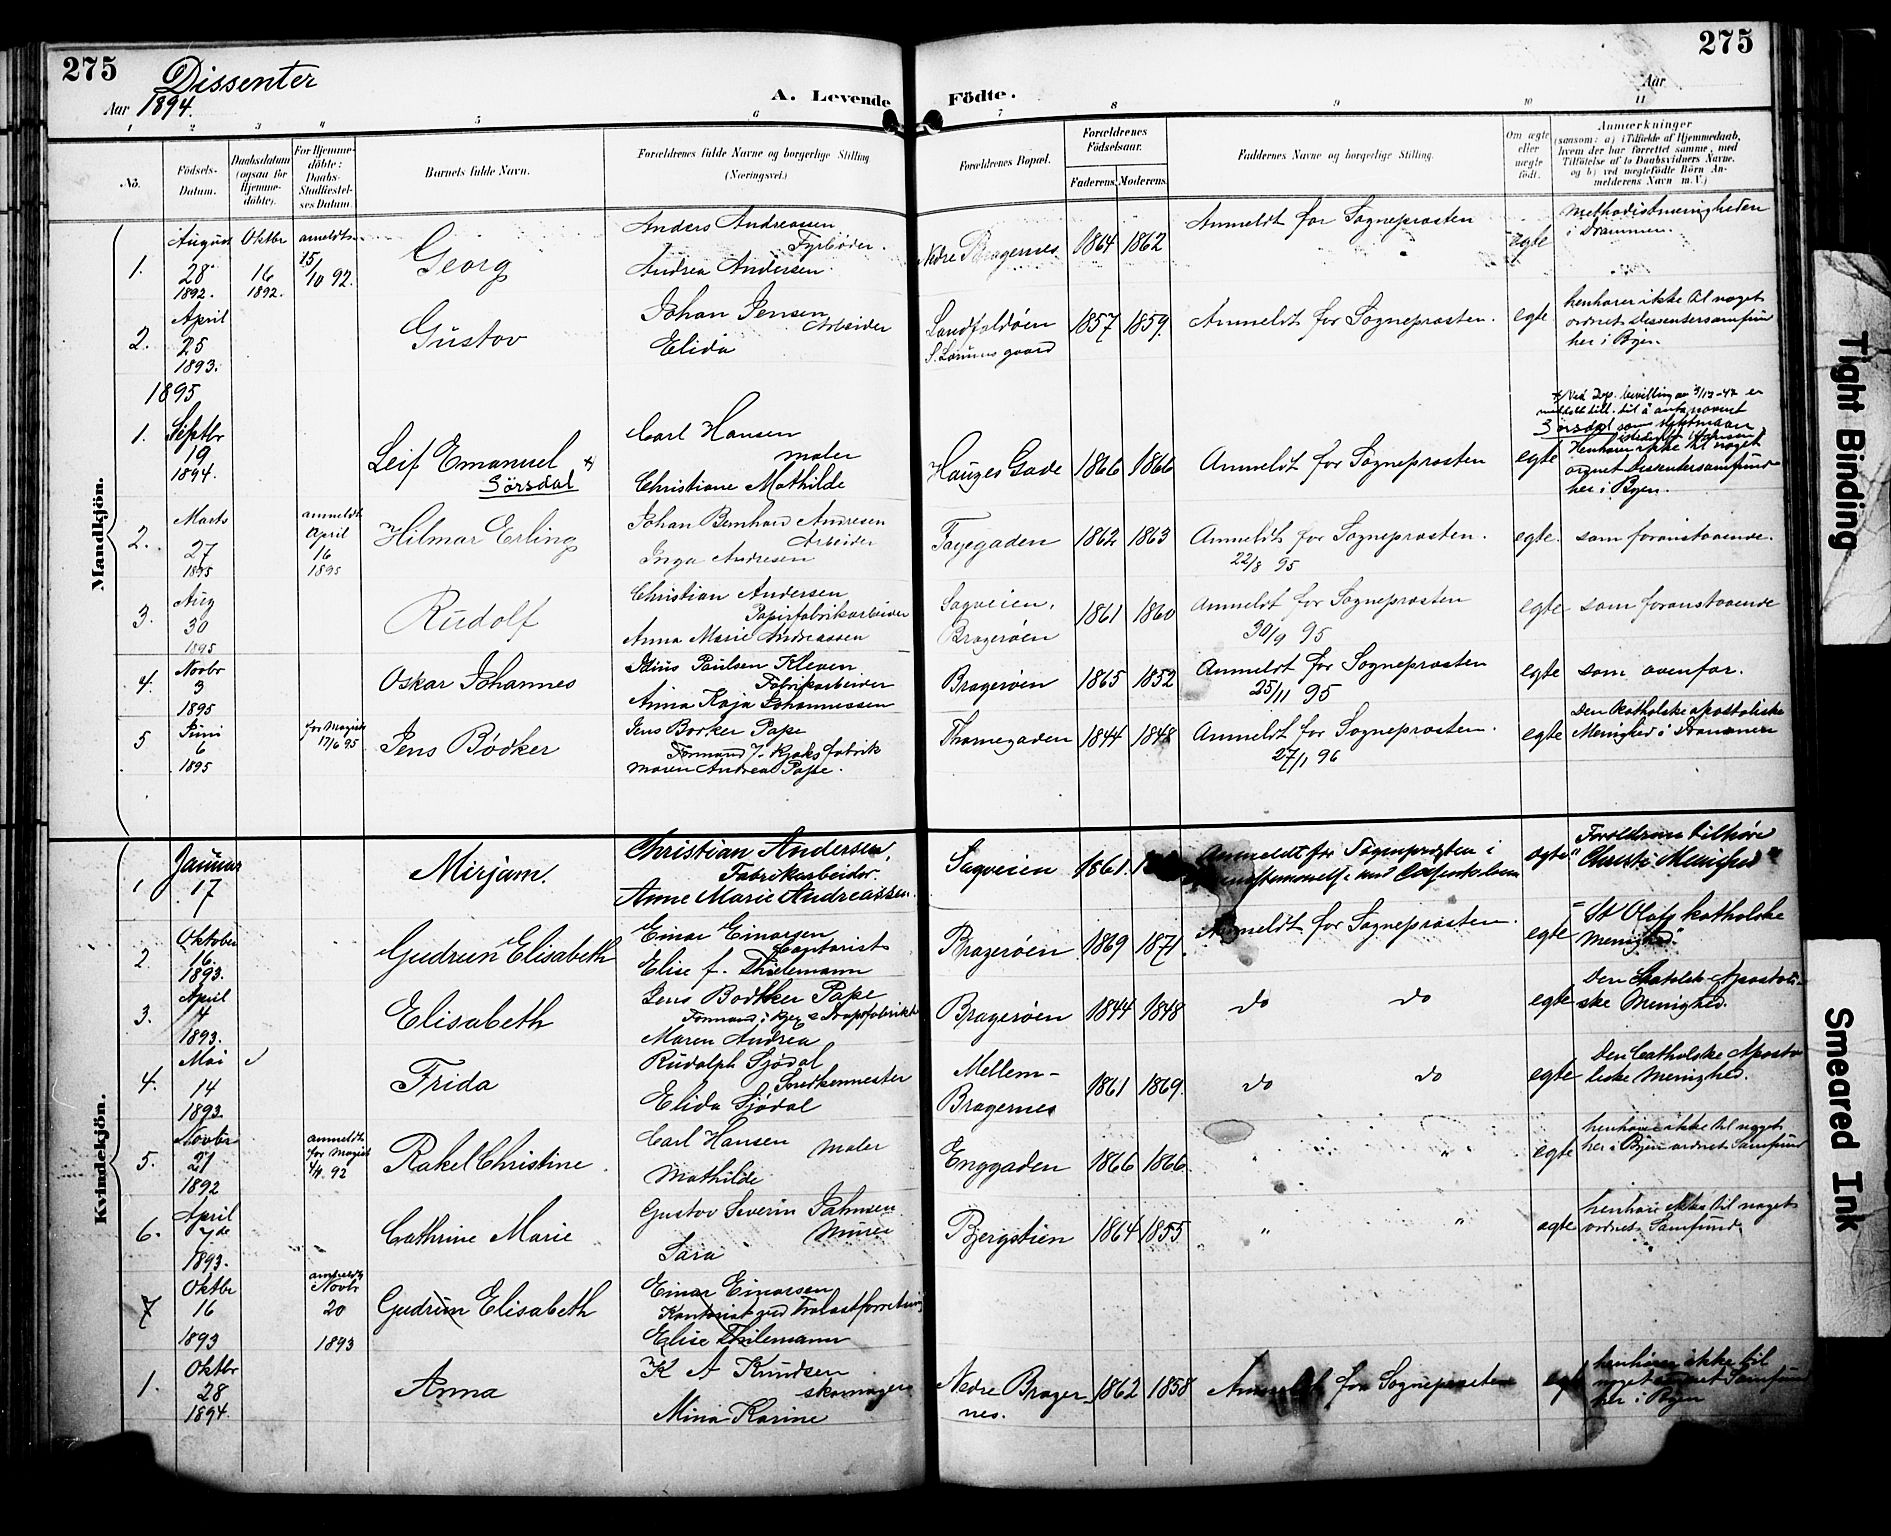 275 Dissenter
Aar 1894.
A. Levende Födte.
Aar
275
1 2 3 4 5 6 7 8 9 10 11
No.
Födsels-Datum.
Daabsdatum (ogsaa for Hjemme-döbte).
For Hjemme-döbte: Daabs-Stadfæstel-ses Datum.
Barnets fulde Navn.
Forældrenes fulde Navne og borgerlige Stilling
(Næringsvei.)
Forældrenes Bopæl.
Forældrenes Födselsaar.
Faderens. Moderens.
Faddernes Navne og borgerlige Stilling.
Om ægte eller uægte födt.
Anmærkninger
(saasom: a) i Tilfælde af Hjemmedaab,
hvem der har forrettet samme, med
Tilföielse af to Daabsvidners Navne,
og b) ved uægtefödte Börn An-
melderens Navn m. V.)
Mandkjön.
1. August 28 1892. Oktbr 16 1892. anmeldt 15/10 92. Georg
Anders Andreassen
Fyrbøder.
Andrea Andersen.
Nedre Bragernes 1864 1862 Anmeldt for Sogneprosten egte
Methodistmenigheden
i Drammen.
2. April 25 1893. Gustav
Johan Jensen
Arbeider
Elida
Landfaldöen 1857 1859. Anmeldt for Sogneprosten. egte
henhører ikke til noget
ordnet Dissentersamfund
her i Byen.
1895
1. Septbr 19 1894. Leif Emanuel
Sörsdal
Carl Hansen
maler
Christiane Mathilde
Hauges Gade 1866 1866 Anmeldt for Sogneprosten egte
Sörsdal som slektsnavn
Henhører ikke til noget
ordnet Dissentersamfund
her i Byen.
2. Marts 27 1895 anmeldt April 16 1895 Hilmar Erling
Johan Bernhard Andresen
Arbeider
Inga Andresen
Fayegaden 1862 1863 Anmeldt for Sogneprosten. egte. som foranstaaende.
22/8 95
3. Aug 30 1895 Rudolf
Christian Andersen
Papirfabrikarbeider
Anna Marie Andreassen
Sagveien,
Bragerøen 1861 1860 Anmeldt for Sogneprosten egte som foranstaaende
30/9 95
4. Novbr 3 1895 Oskar Johannes
Paulsen Kleven
Fabrikarbeider
Anna Kaja Johannessen
Bragerøen 1865 1852 Anmeldt for Sogneprosten egte som ovenfor.
25/11 95
5 Juni 6 1895 for Magist 17/6 95 Jens Bödker
Jens Bodker Pape
Formand fabrik
Maren Andrea Pape.
Thomegaden 1844 1848 Anmeldt for Sogneprosten. egte
27/1 96
Den katholske apostoliske
Menighed i Drammen
Kvindekjön.
1 Januar 17 Mirjam.
Christian Andersen,
Fabrikarbeider.
Anne Marie Andreassen.
Sagveien 1861. Anmeldt for Sogneprosten i
egte
Forældrene tilhöre
"Christi Menighed"
2. Oktober 16. 1893. Gudrun Elisabeth
Einar Einarsen
Contorist
Elise f. Thielemann
Bragerøen 1869 1871. Anmeldt for Sogneprosten. egte
"St Olafs katholske
Menighed."
3. April 14 1893. Elisabeth
Jens Bodtker Pape
Maren Andrea
Bragerøen 1844 1848 do do egte
Den Katolsk Apostoli-
ske Menighed.
4. Mai 14 1893. Frida
Rudolph Sjödal
Elida Sjödal
Mellem-
Bragernes 1861 1869. do do egte
Den Catholske Aposto
liske Menighed.
5. Novbr 21 1892 anmeldt for Magist 4/4 92 Rakel Christine.
Carl Hansen
Maler
Mathilde
Enggaden 1866 1866. " " egte
henhører ikke til noget
her i Byen ordnet Samfund
6. April 7de 1893. Cathrine Marie
Gustav Severin
Sara
Bergstien 1864 1855 " " egte
henhører ikke til noget
ordnet Samfund.
7 Oktbr 16 1893 anmeldt Novbr 20 1893 Gudrun Elisabeth
Einar Einarsen
Kontorist ved Trælastforretning
Elise Thilemann
1. Oktbr 28 1894. Anna
K A Knudsen
skomager
Mina Karine
Nedre Brager-
nes. 1862 1858 Anmeldt for Sogneprosten egte
henhører ikke til
noget ordnet Samfund
her i Byen
Tight Binding
Smeared Ink